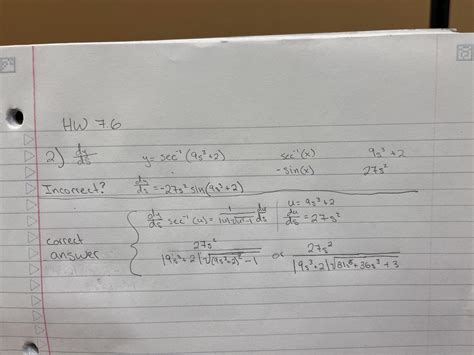 HW 7.6
2) dy/ds y = sec⁻¹(9s³+2) sec⁻¹(x) 9s³+2
-sin(x) 27s²
Incorrect? dy/ds = -27s² sin(9s³+2)
correct answer { dy/ds sec⁻¹(u) = 1/(|u|√(u²-1)) du/ds | u = 9s³+2
du/ds = 27s²
27s²/(|9s³+2|√((9s³+2)²-1)) or 27s²/(|9s³+2|√(81s⁶+36s³+3))